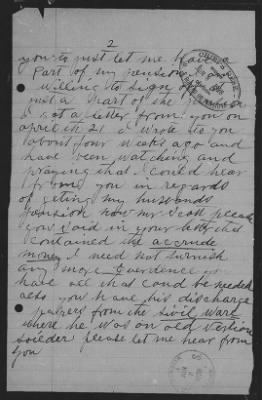 2
you to just let me have
part of my pension
willing to sign
just a part of the
I got a letter from you on
april th 21 I wrote to you
about four weeks ago and
have been watching and
praying that I could hear
from you in regards
of geting my husbands
pension now mr Scott please
you said in your letter that
contained the accrude
money I need not furnish
any more Evendence you
have all that coud be needed
also you have his discharge
papers from the Sivil ware
where he was an old
soilder please let me hear from
you